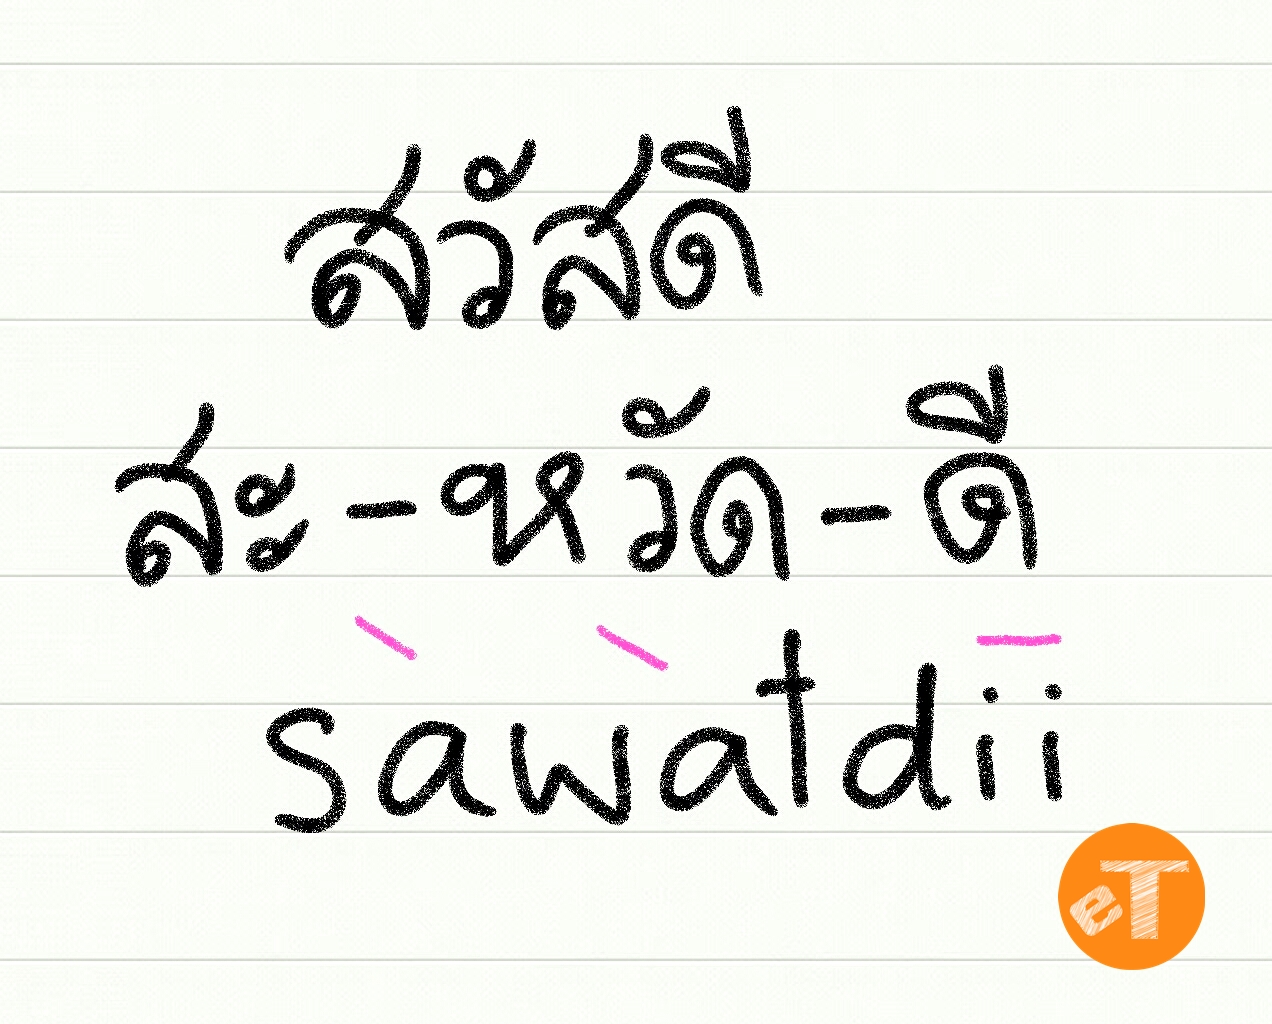 สวัสดี
สะ-หวัด-ดี
sawatdii
eT